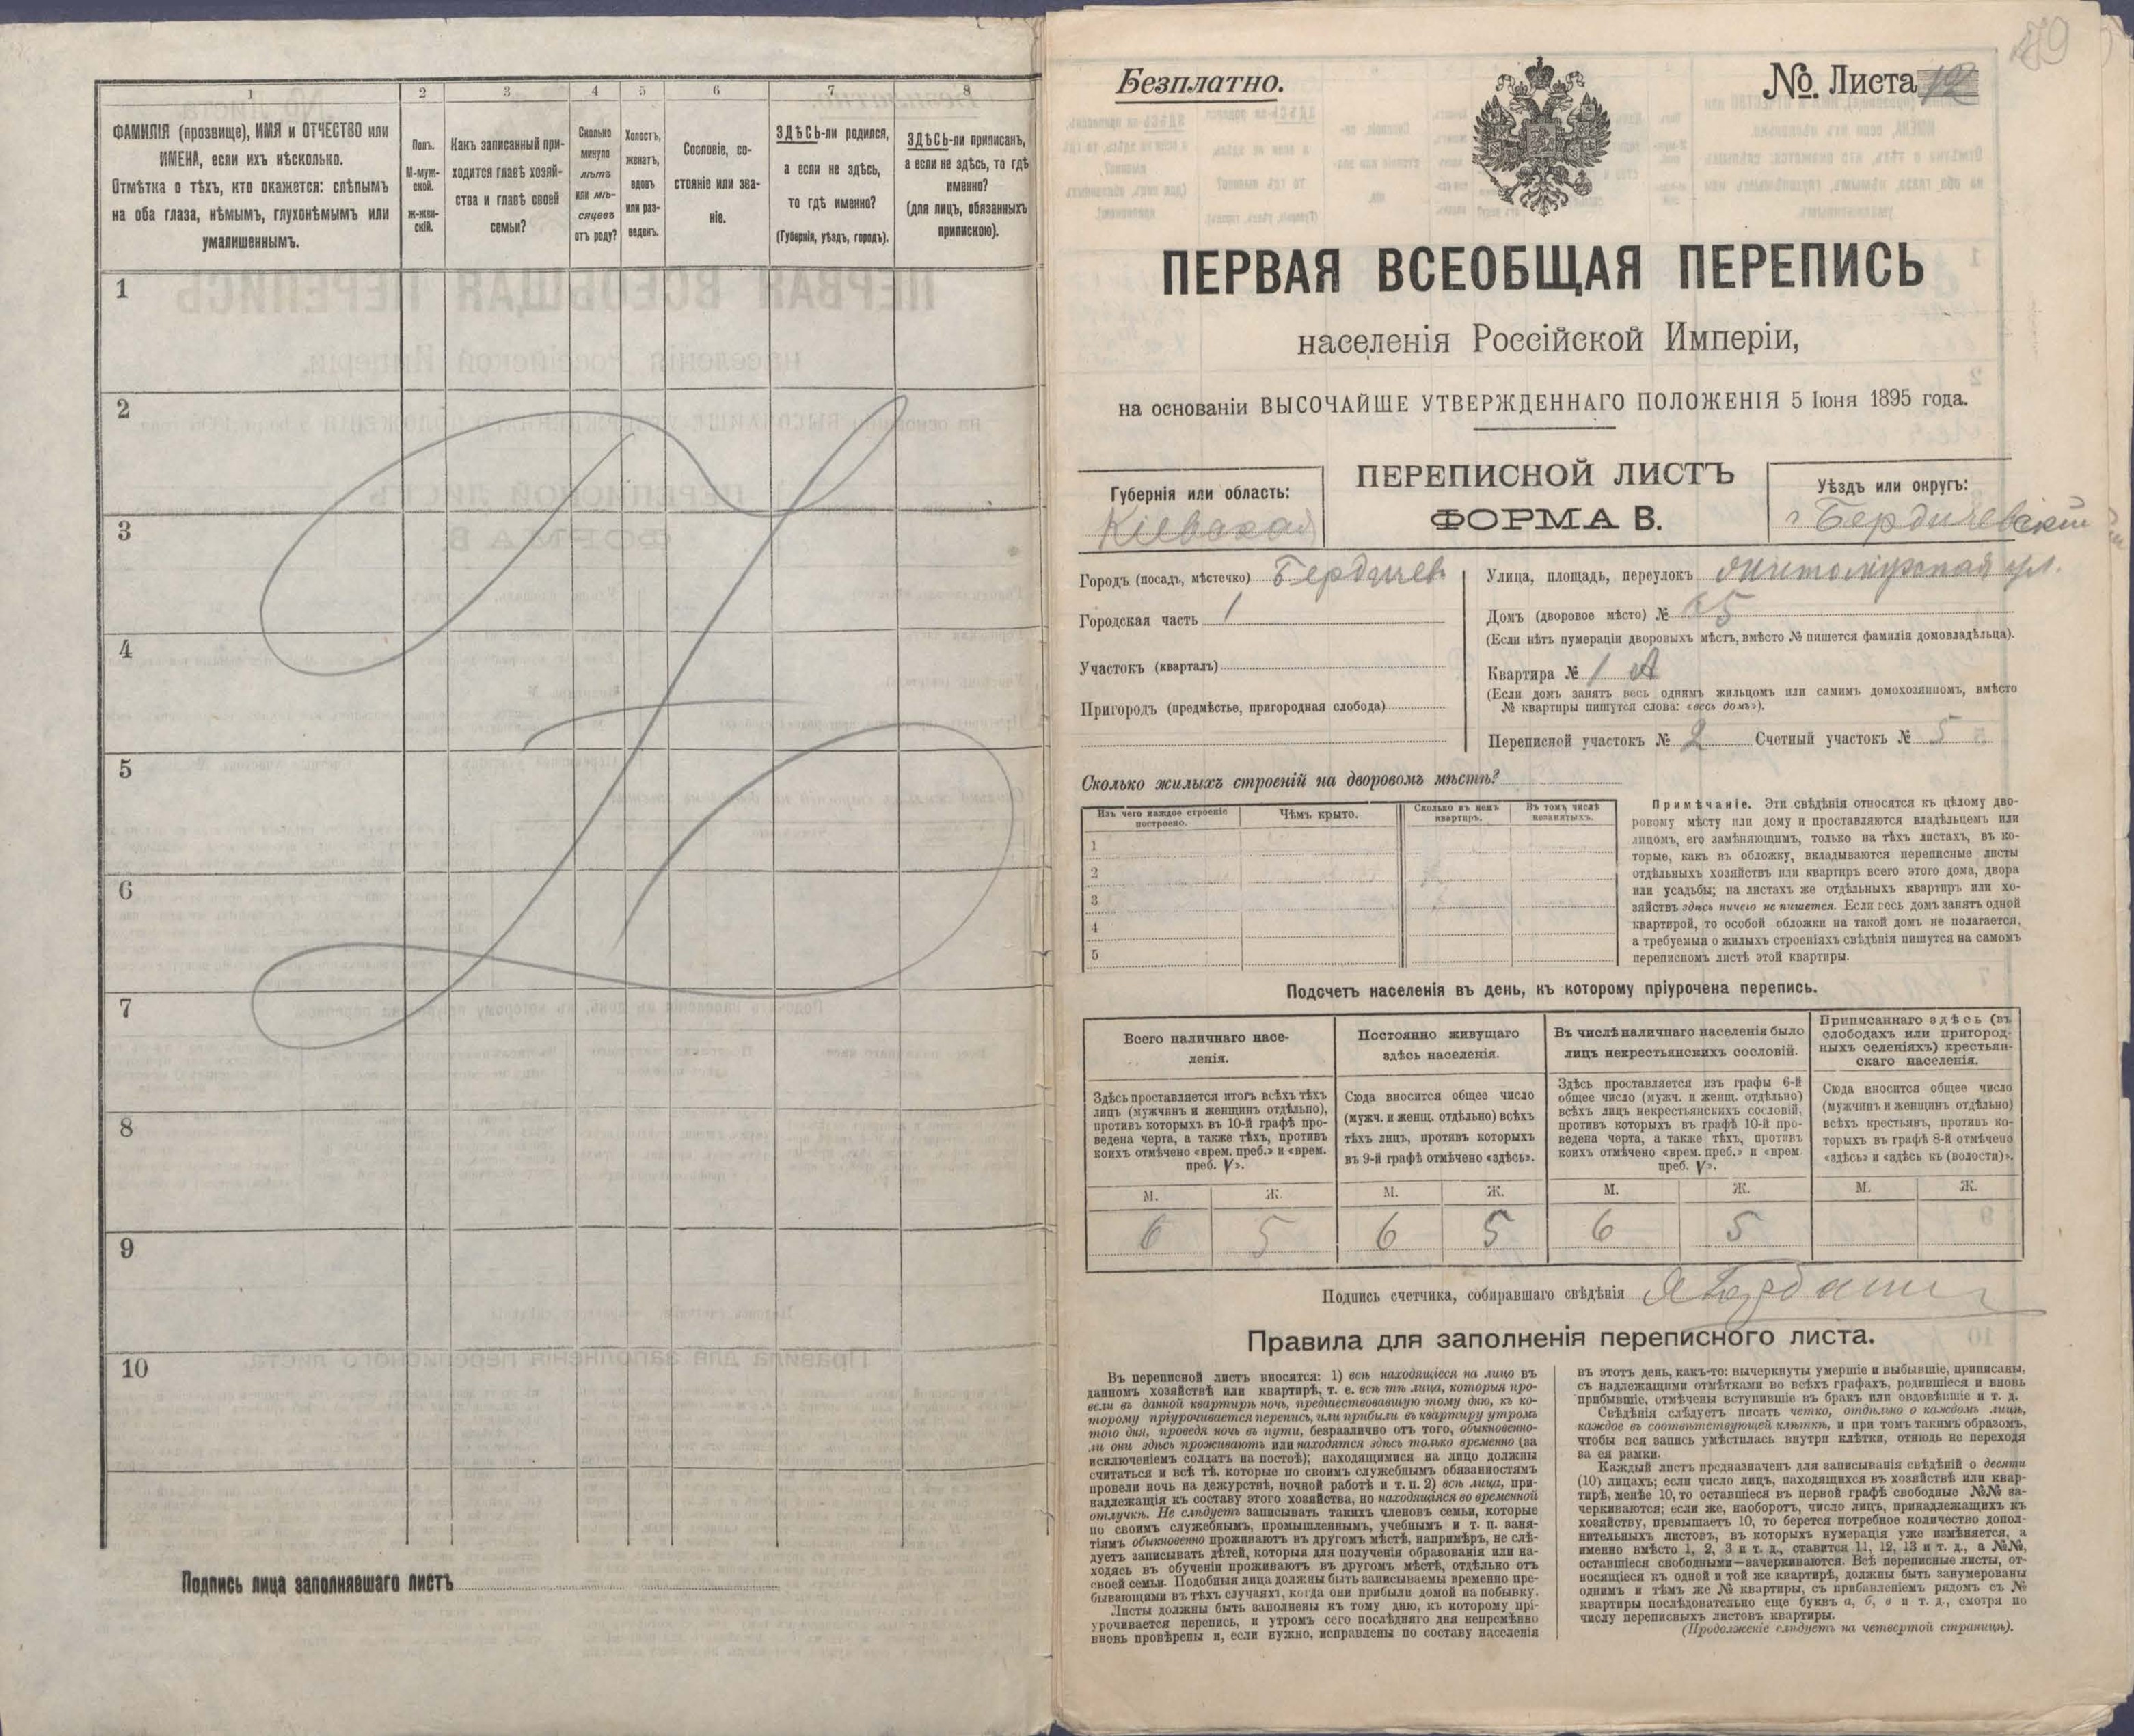 1
2
3
4
5
6
7
8
ФАМИЛІЯ (прозвище), ИМЯ и ОТЧЕСТВО или
ИМЕНА, если ихъ нѣсколько.
Отмѣтка о тѣхъ, кто окажется: слѣпымъ
на оба глаза, нѣмымъ, глухонѣмымъ или
умалишеннымъ.
Полъ.
М-муж-
ской.
Ж-жен-
скій.
Какъ записанный при-
ходится главѣ хозяй-
ства и главѣ своей
семьи?
Сколько
минуло
лѣтъ
или мѣ-
сяцевъ
отъ роду?
Холостъ,
женатъ,
вдовъ
или раз-
веденъ.
Сословіе, со-
стояніе или зва-
ніе.
ЗДѢСЬ-ли родился,
а если не здѣсь,
то гдѣ именно?
(Губернія, уѣздъ, городъ).
ЗДѢСЬ-ли приписанъ,
а если не здѣсь, то гдѣ
именно?
(для лицъ, обязанныхъ
припискою).
1
2
3
4
5
6
7
8
9
10
Подпись лица заполнявшаго листъ
Безплатно.
№. Листа 12
ПЕРВАЯ ВСЕОБЩАЯ ПЕРЕПИСЬ
населенія Россійской Имперіи,
на основаніи ВЫСОЧАЙШЕ УТВЕРЖДЕННАГО ПОЛОЖЕНІЯ 5 Іюня 1895 года.
Губернія или область:
Кіевская
ПЕРЕПИСНОЙ ЛИСТЪ
ФОРМА В.
Уѣздъ или округъ:
Бердичевскій
Городъ (посадъ, мѣстечко) Бердичев
Городская часть 1
Участокъ (кварталъ)
Пригородъ (предмѣстье, пригородная слобода)
Улица, площадь, переулокъ Житомирская ул.
Домъ (дворовое мѣсто) № 65
(Если нѣтъ нумераціи дворовыхъ мѣстъ, вмѣсто № пишется фамилія домовладѣльца).
Квартира № 1 А
(Если домъ занятъ весь однимъ жильцомъ или самимъ домохозяиномъ, вмѣсто
№ квартиры пишутся слова: «весь домъ»).
Переписной участокъ № 2 Счетный участокъ № 5
Сколько жилыхъ строеній на дворовомъ мѣстѣ?
Изъ чего каждое строеніе
построено.
Чѣмъ крыто.
Сколько въ немъ
квартиръ.
Въ томъ числѣ
незанятыхъ.
1
2
3
4
5
Примѣчаніе. Эти свѣдѣнія относятся къ цѣлому дво-
ровому мѣсту или дому и проставляются владѣльцемъ или
лицомъ, его замѣняющимъ, только на тѣхъ листахъ, въ ко-
торые, какъ въ обложку, вкладываются переписные листы
отдѣльныхъ хозяйствъ или квартиръ всего этого дома, двора
или усадьбы; на листахъ же отдѣльныхъ квартиръ или хо-
зяйствъ здѣсь ничего не пишется. Если весь домъ занятъ одной
квартирой, то особой обложки на такой домъ не полагается,
а требуемыя о жилыхъ строеніяхъ свѣдѣнія пишутся на самомъ
переписномъ листѣ этой квартиры.
Подсчетъ населенія въ день, къ которому пріурочена перепись.
Всего наличнаго насе-
ленія.
Здѣсь проставляется итогъ всѣхъ тѣхъ
лицъ (мужчинъ и женщинъ отдѣльно),
противъ которыхъ въ 10-й графѣ про-
ведена черта, а также тѣхъ, противъ
коихъ отмѣчено «врем. преб.» и «врем.
преб. V».
Постоянно живущаго
здѣсь населенія.
Сюда вносится общее число
(мужч. и женщ. отдѣльно) всѣхъ
тѣхъ лицъ, противъ которыхъ
въ 9-й графѣ отмѣчено «здѣсь».
Въ числѣ наличнаго населенія было
лицъ некрестьянскихъ сословій.
Здѣсь проставляется изъ графы 6-й
общее число (мужч. и женщ. отдѣльно)
всѣхъ лицъ некрестьянскихъ сословій,
противъ которыхъ въ графѣ 10-й про-
ведена черта, а также тѣхъ, противъ
коихъ отмѣчено «врем. преб.» и «врем
преб. V».
Приписаннаго здѣсь (въ
слободахъ или пригород-
ныхъ селеніяхъ) крестьян-
скаго населенія.
Сюда вносится общее число
(мужчинъ и женщинъ отдѣльно)
всѣхъ крестьянъ, противъ ко-
торыхъ въ графѣ 8-й отмѣчено
«здѣсь» и «здѣсь къ (волости)».
М. Ж. М. Ж. М. Ж. М. Ж.
6 5 6 5 6 5
Подпись счетчика, собиравшаго свѣдѣнія
Правила для заполненія переписного листа.
Въ переписной листъ вносятся: 1) всѣ находящіеся на лицо въ
данномъ хозяйствѣ или квартирѣ, т. е. всѣ тѣ лица, которыя про-
вели въ данной квартирѣ ночь, предшествовавшую тому дню, къ ко-
торому пріурочивается перепись, или прибыли въ квартиру утромъ
того дня, проведя ночь въ пути, безразлично отъ того, обыкновенно-
ли они здѣсь проживаютъ или находятся здѣсь только временно (за
исключеніемъ солдатъ на постоѣ); находящимися на лицо должны
считаться и всѣ тѣ, которые по своимъ служебнымъ обязанностямъ
провели ночь на дежурствѣ, ночной работѣ и т. п. 2) всѣ лица, при-
надлежащія къ составу этого хозяйства, но находящіяся во временной
отлучкѣ. Не слѣдуетъ записывать такихъ членовъ семьи, которые
по своимъ служебнымъ, промышленнымъ, учебнымъ и т. п. заня-
тіямъ обыкновенно проживаютъ въ другомъ мѣстѣ, напримѣръ, не слѣ-
дуетъ записывать дѣтей, которыя для полученія образованія или на-
ходясь въ обученіи проживаютъ въ другомъ мѣстѣ, отдѣльно отъ
своей семьи. Подобныя лица должны быть записываемы временно пре-
бывающими въ тѣхъ случаяхъ, когда они прибыли домой на побывку.
Листы должны быть заполнены къ тому дню, къ которому прі-
урочивается перепись, и утромъ сего послѣдняго дня непремѣнно
вновь провѣрены и, если нужно, исправлены по составу населенія
въ этотъ день, какъ-то: вычеркнуты умершіе и выбывшіе, приписаны,
съ надлежащими отмѣтками во всѣхъ графахъ, родившіеся и вновь
прибывшіе, отмѣчены вступившіе въ бракъ или овдовѣвшіе и т. д.
Свѣдѣнія слѣдуетъ писать четко, отдѣльно о каждомъ лицѣ,
каждое въ соотвѣтствующей клѣткѣ, и при томъ такимъ образомъ,
чтобы вся запись умѣстилась внутри клѣтки, отнюдь не переходя
за ея рамки.
Каждый листъ предназначенъ для записыванія свѣдѣній о десяти
(10) лицахъ; если число лицъ, находящихся въ хозяйствѣ или квар-
тирѣ, менѣе 10, то оставшіеся въ первой графѣ свободные №№ за-
черкиваются; если же, наоборотъ, число лицъ, принадлежащихъ къ
хозяйству, превышаетъ 10, то берется потребное количество допол-
нительныхъ листовъ, въ которыхъ нумерація уже измѣняется, а
именно вмѣсто 1, 2, 3 и т. д., ставится 11, 12, 13 и т. д., а №№,
оставшіеся свободными—зачеркиваются. Всѣ переписные листы, от-
носящіеся къ одной и той же квартирѣ, должны быть занумерованы
однимъ и тѣмъ же № квартиры, съ прибавленіемъ рядомъ съ №
квартиры послѣдовательно еще буквъ а, б, в и т. д., смотря по
числу переписныхъ листовъ квартиры.
(Продолженіе слѣдуетъ на четвертой страницѣ).